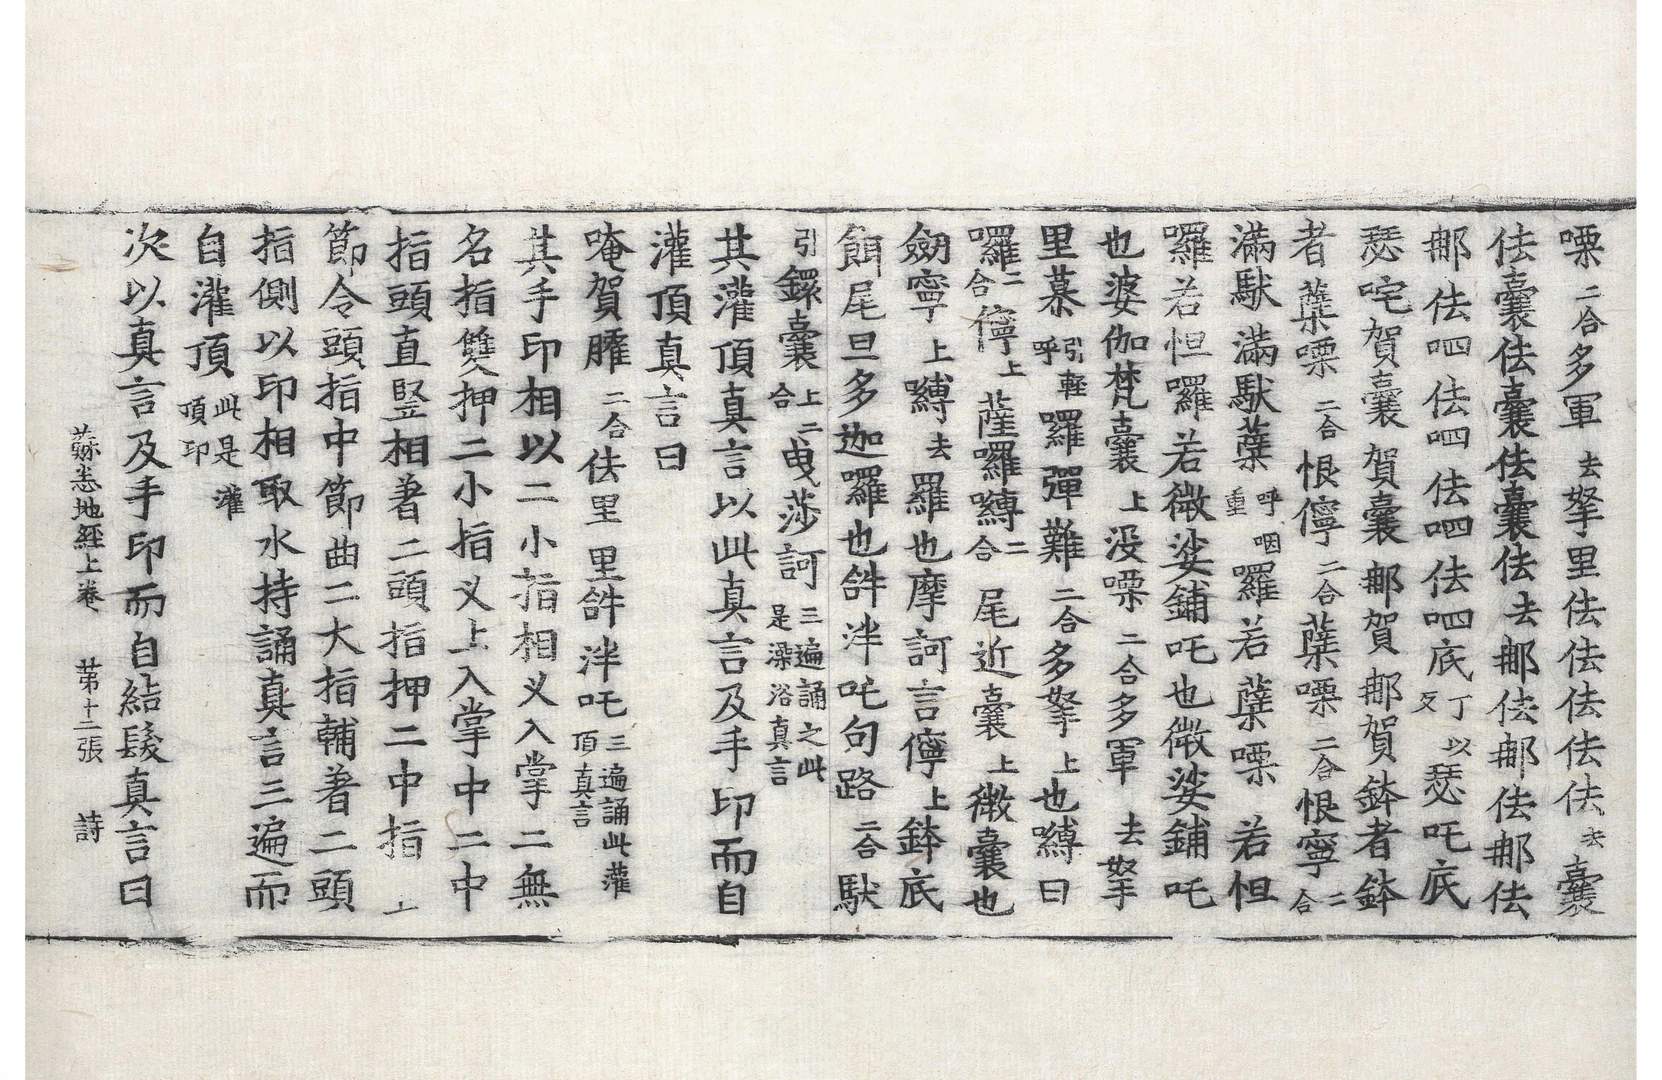 㗚二合多軍去拏里佉佉佉佉佉去囊
佉囊佉囊佉囊佉去那佉那佉那佉
那佉呬佉呬佉呬佉呬底丁以反瑟吒底
瑟咤賀囊賀囊那賀那賀鉢者鉢
者蘖㗚二合恨儜二合蘖㗚二合恨寧二合
滿馱滿馱蘖呼咽重羅若蘖㗚若怛
羅若怛囉若微娑鋪吒也微娑鋪吒
也婆伽梵囊上沒㗚二合多軍去拏
里慕引輕呼羅彈難二合多拏上也嚩日
囉二合儜上薩囉嚩二合尾近囊上微囊也
劒寧上嚩去羅也摩訶言儜上鉢底
餌尾旦多迦囉也𤙖泮吒句路二合馱
引鑠囊上二合曳莎訶三遍誦之此是澡浴真言
其灌頂真言以此真言及手印而自
灌頂真言曰
唵賀㬦二合佉里里𤙖泮吒三遍誦此灌頂真言
其手印相以二小指相叉入掌二無
名指雙押二小指叉上入掌中二中
指頭直竪相著二頭指押二中指上
節令頭指中節曲二大指輔著二頭
指側以印相取水持誦真言三遍而
自灌頂此是灌頂印
蘇悉地經上卷 第十二張 詩
次以真言及手印而自結髮真言曰